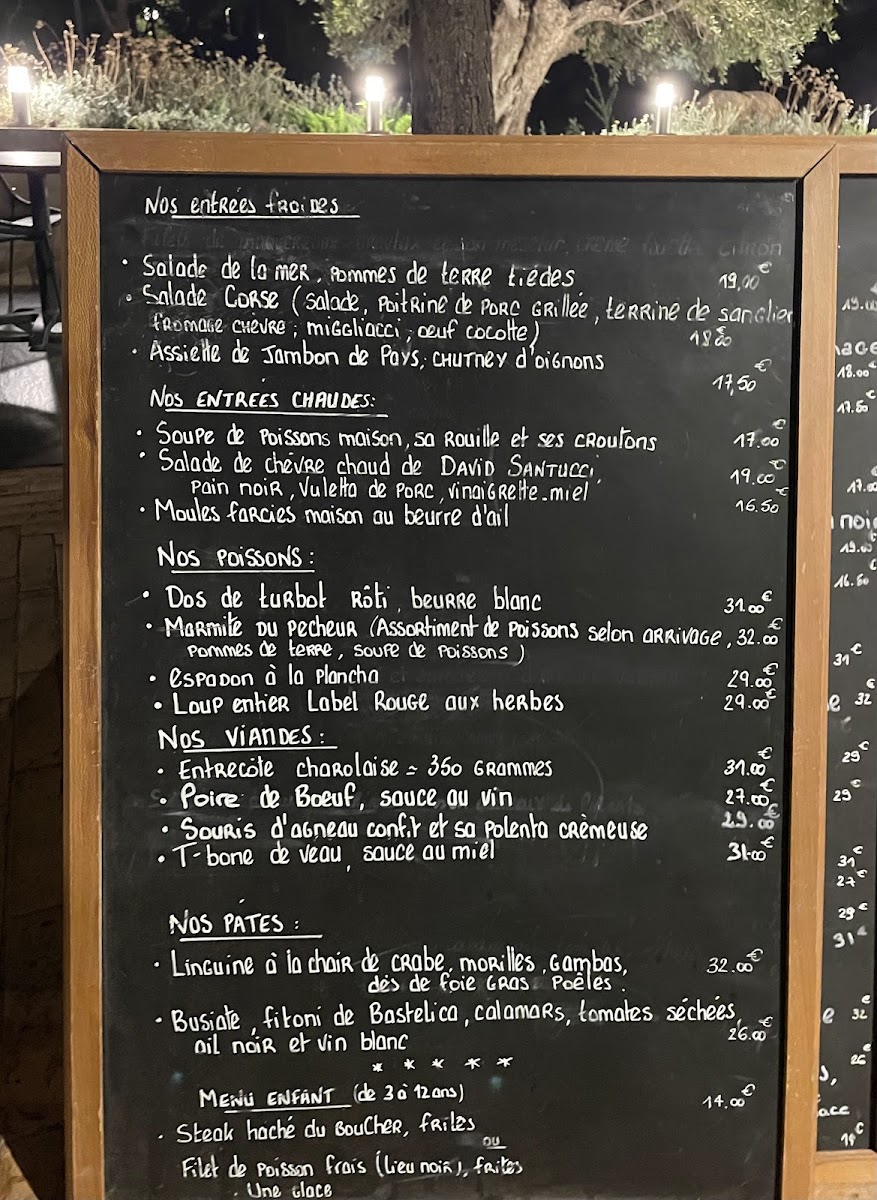 Nos entrées froides
• Salade de la mer, pommes de terre tièdes 19,00€
• Salade Corse (salade, poitrine de porc grillée, terrine de sanglier
fromage chèvre, miggliacci, oeuf cocotte) 18.00
• Assiette de Jambon de Pays, chutney d'oignons
17,50€
Nos entrées chaudes:
• Soupe de poissons maison, sa rouille et ses croutons 17.00€
• Salade de chèvre chaud de David Santucci, 19.00€
pain noir, Vuletta de porc, vinaigrette-miel
• Moules farcies maison au beurre d'ail 16.50€
Nos poissons:
• Dos de turbot rôti, beurre blanc 31.00€
• Marmite du pecheur (Assortiment de poissons selon arrivage, 32.00€
pommes de terre, soupe de poissons)
• espadon à la plancha 29.00€
• Loup entier Label Rouge aux herbes 29.00€
Nos viandes:
• Entrecôte charolaise ≃ 350 grammes 31.00€
• Poire de Boeuf, sauce au vin 27.00€
• Souris d'agneau confit et sa polenta crèmeuse 29.00€
• T-bone de veau, sauce au miel 31.00€
Nos pâtes:
• Linguine à la chair de crabe, morilles, gambas, 32.00€
dés de foie gras poêles.
• Busiate, fitoni de Bastelica, calamars, tomates séchées,
ail noir et vin blanc 26.00€
* * * * *
Menu enfant (de 3 à 12 ans) 14.00€
• Steak haché du boucher, frites
ou
Filet de poisson frais (lieu noir), frites
• Une glace
18.00€
17.50€
noi
16.50
31€
e 32
29€
29€
31€
27€
29€
31€
e 32€
26€
14€